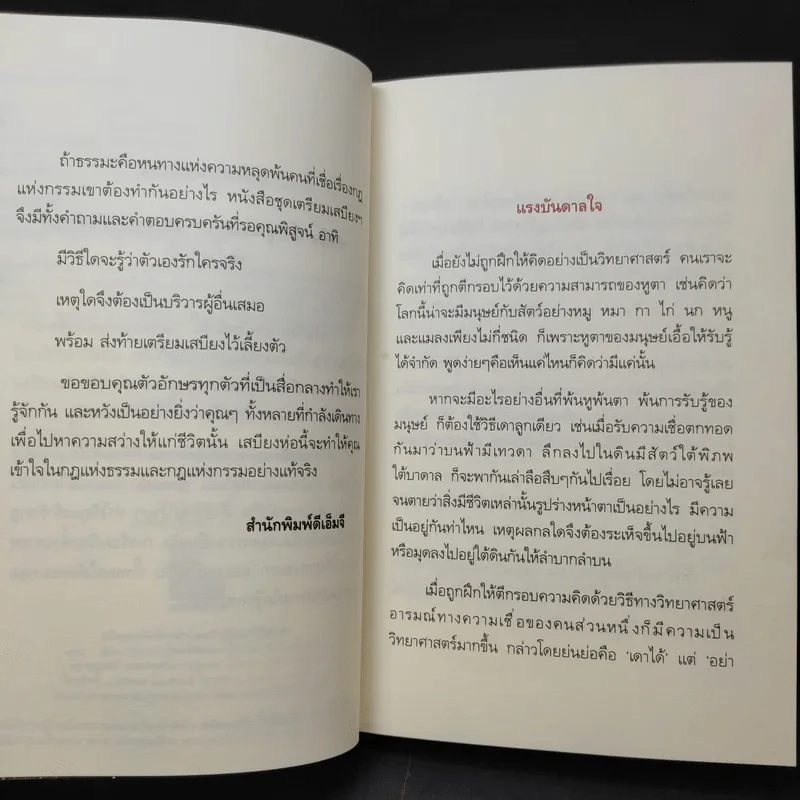 ถ้าธรรมะคือหนทางแห่งความหลุดพ้นคนที่เชื่อเรื่องกฎ
แห่งกรรมเขาต้องทำกันอย่างไร หนังสือชุดเตรียมเสบียงๆ
จึงมีทั้งคำถามและคำตอบครบครันที่รอคุณพิสูจน์ อาทิ
มีวิธีใดจะรู้ว่าตัวเองรักใครจริง
เหตุใดจึงต้องเป็นบริวารผู้อื่นเสมอ
พร้อม ส่งท้ายเตรียมเสบียงไว้เลี้ยงตัว
ขอขอบคุณตัวอักษรทุกตัวที่เป็นสื่อกลางทำให้เรา
รู้จักกัน และหวังเป็นอย่างยิ่งว่าคุณๆ ทั้งหลายที่กำลังเดินทาง
เพื่อไปหาความสว่างให้แก่ชีวิตนั้น เสบียงห่อนี้จะทำให้คุณ
เข้าใจในกฎแห่งธรรมและกฎแห่งกรรมอย่างแท้จริง
สำนักพิมพ์ดีเอ็มจี
แรงบันดาลใจ
เมื่อยังไม่ถูกฝึกให้คิดอย่างเป็นวิทยาศาสตร์ คนเราจะ
คิดเท่าที่ถูกตีกรอบไว้ด้วยความสามารถของหูตา เช่นคิดว่า
โลกนี้น่าจะมีมนุษย์กับสัตว์อย่างหมู หมา กา ไก่ นก หนู
และแมลงเพียงไม่กี่ชนิด ก็เพราะหูตาของมนุษย์เอื้อให้รับรู้
ได้จำกัด พูดง่ายๆคือเห็นแค่ไหนก็คิดว่ามีแค่นั้น
หากจะมีอะไรอย่างอื่นที่พ้นหูพ้นตา พ้นการรับรู้ของ
มนุษย์ ก็ต้องใช้วิธีเดาลูกเดียว เช่นเมื่อรับความเชื่อตกทอด
กันมาว่าบนฟ้ามีเทวดา ลึกลงไปในดินมีสัตว์ใต้พิภพ
ใต้บาดาล ก็จะพากันเล่าลือสืบๆกันไปเรื่อย โดยไม่อาจรู้เลย
จนตายว่าสิ่งมีชีวิตเหล่านั้นรูปร่างหน้าตาเป็นอย่างไร มีความ
เป็นอยู่กันท่าไหน เหตุผลกลใดจึงต้องระเห็จขึ้นไปอยู่บนฟ้า
หรือมุดลงไปอยู่ใต้ดินกันให้ลำบากลำบน
เมื่อถูกฝึกให้ตีกรอบความคิดด้วยวิธีทางวิทยาศาสตร์
อารมณ์ทางความเชื่อของคนส่วนหนึ่งก็มีความเป็น
วิทยาศาสตร์มากขึ้น กล่าวโดยย่นย่อคือ 'เดาได้' แต่ 'อย่า